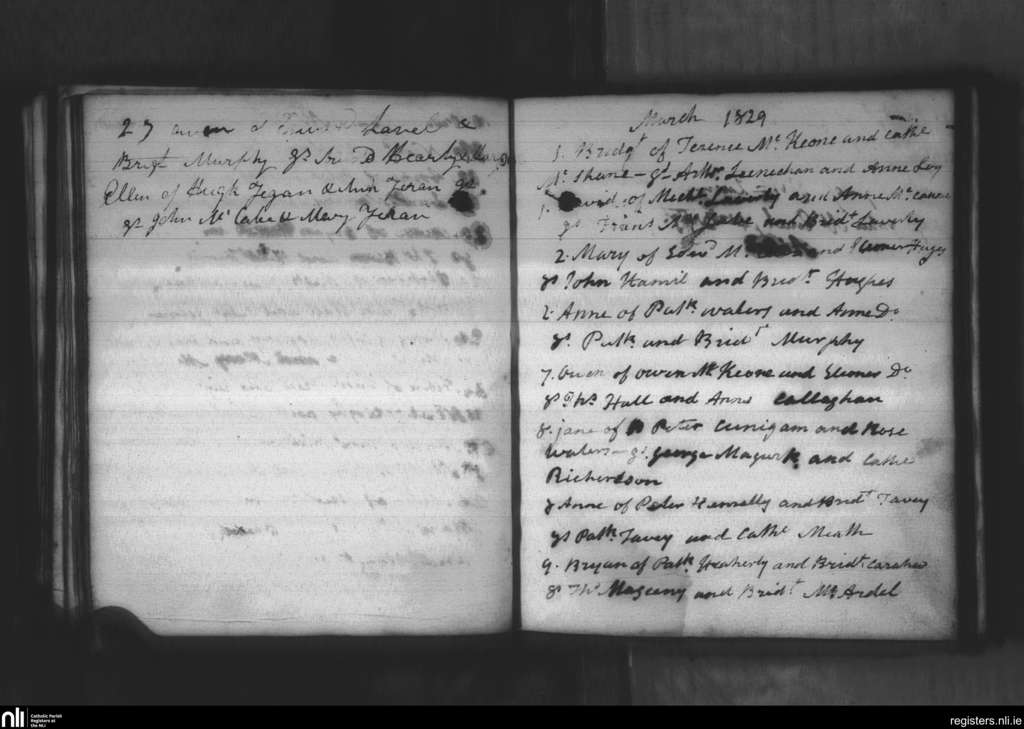 27
Brigt Murphy gs
Ellen of Hugh Feran & Ann Feran gs
gs John Mc Cabe & Mary Feran
March 1829
1. Bridgt of Terence Mc Keone and Cathe
Mc Shane - gs Arthr Leenechan and Anne Loy
1. David of Michl Laverty and Anne Mc
gs Frans and Bridt Laverty
2. Mary of Edwd Mc and
gs John Hamil and Bridt Hughes
2. Anne of Patk waters and Anne Do
gs. Patk and Bridt Murphy
7. Owen of owen Mc Keone and Elioner Do
gs Ths Hall and Anne Callaghan
8. jane of Peter Cunigam and Rose
waters - gs. george Magurk and Cathe
Richerdson
8 Anne of Peter Kennelly and Bridt Tavey
gs Patk Tavey and Cathe Meath
9. Bryan of Patk Heaherty and Bridt Caraher
gs Ths Mageeny and Bridt Mc Ardel
nli
Catholic Parish
Registers at
the NLI
registers.nli.ie